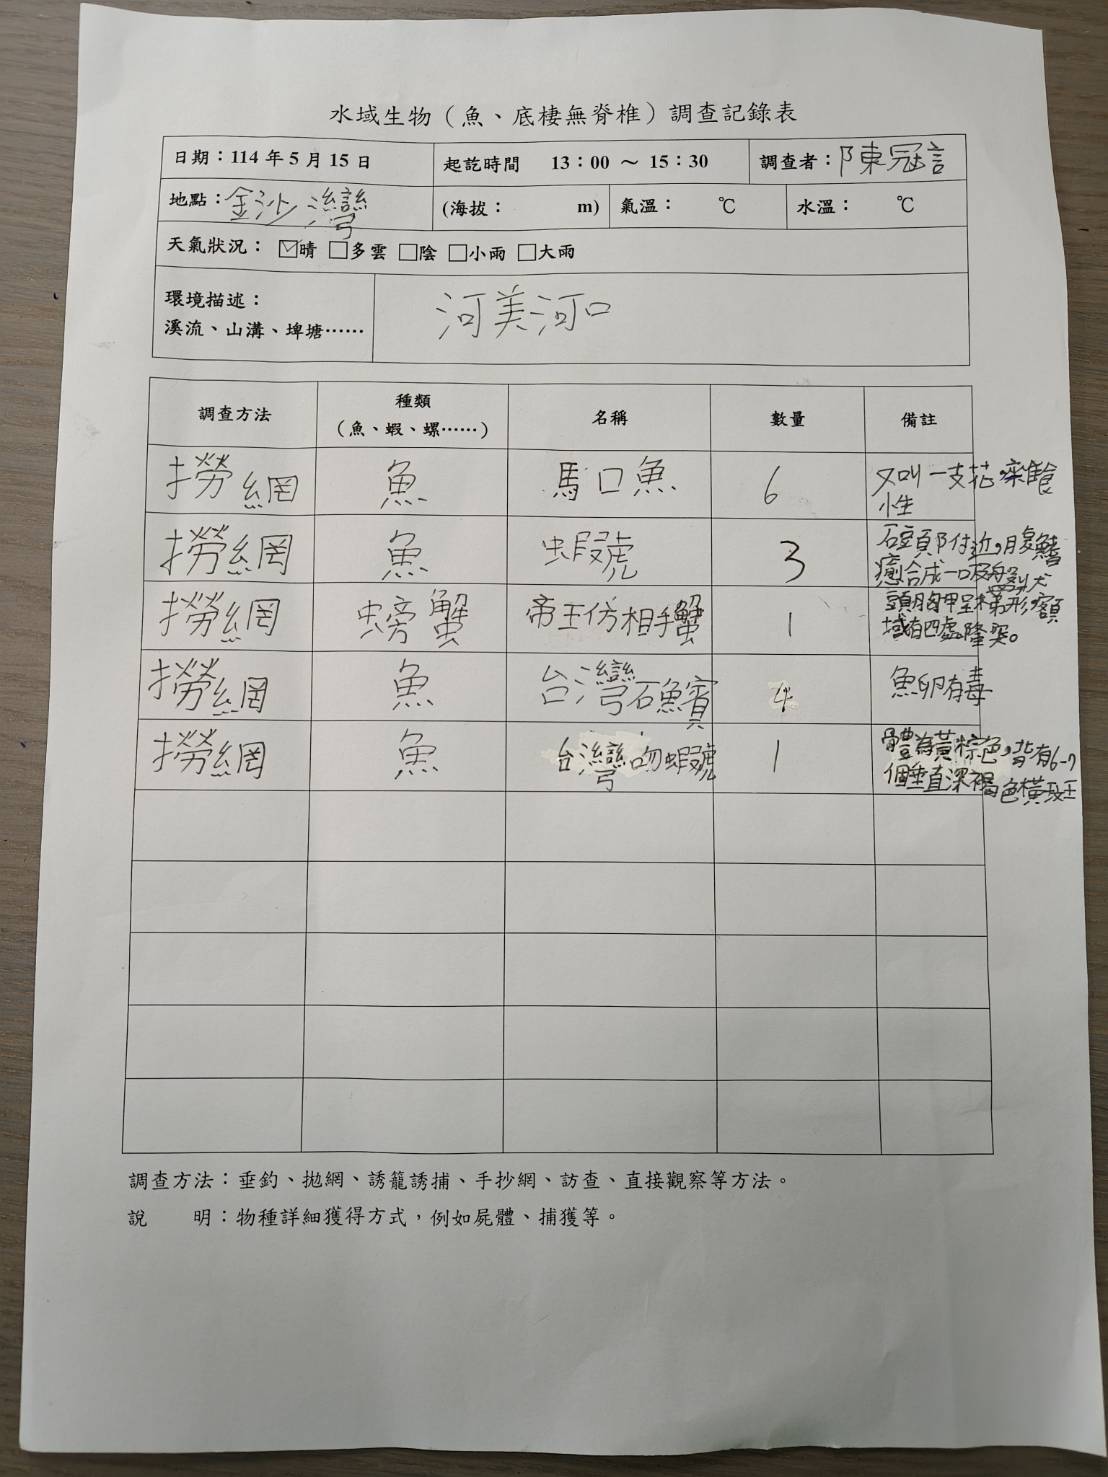 水域生物（魚、底棲無脊椎）調查記錄表
日期：114 年 5 月 15 日 起訖時間 13：00 ～ 15：30 調查者：陳冠言
地點：金沙灣 (海拔： m) 氣溫： ℃ 水溫： ℃
天氣狀況：☑晴 □多雲 □陰 □小雨 □大雨
環境描述：
溪流、山溝、埤塘…… 河美河口
調查方法 種類 名稱 數量 備註
（魚、蝦、螺……）
撈網 魚 馬口魚 6 又叫一支花，雜食
性
撈網 魚 蝦虎 3 石頭附近，腹鰭
癒合成一吸盤狀
撈網 螃蟹 帝王仿相手蟹 1 頭胸甲呈梯形，額
域有四處隆突。
撈網 魚 台灣石魚賓 4 魚卵有毒
撈網 魚 台灣吻蝦虎 1 體為黃棕色，皆有6-7
個垂直深褐色橫斑
調查方法：垂釣、拋網、誘籠誘捕、手抄網、訪查、直接觀察等方法。
說 明：物種詳細獲得方式，例如屍體、捕獲等。